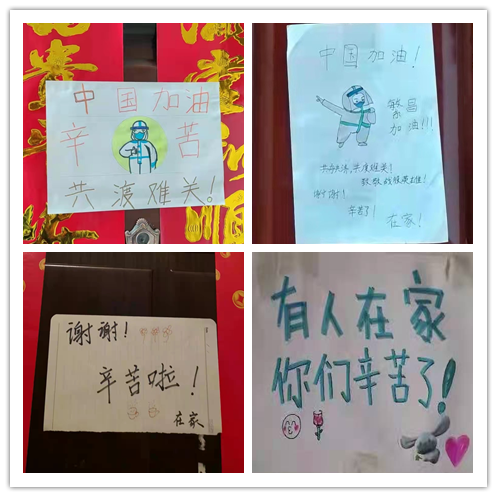 中国加油
辛 苦
共渡难关!
中国加油!
繁昌
加油!!!
共度难关!
致敬 英雄!
谢谢!
辛苦了!
在家!
谢谢!
辛苦啦!
在家
有人在家
你们辛苦了!